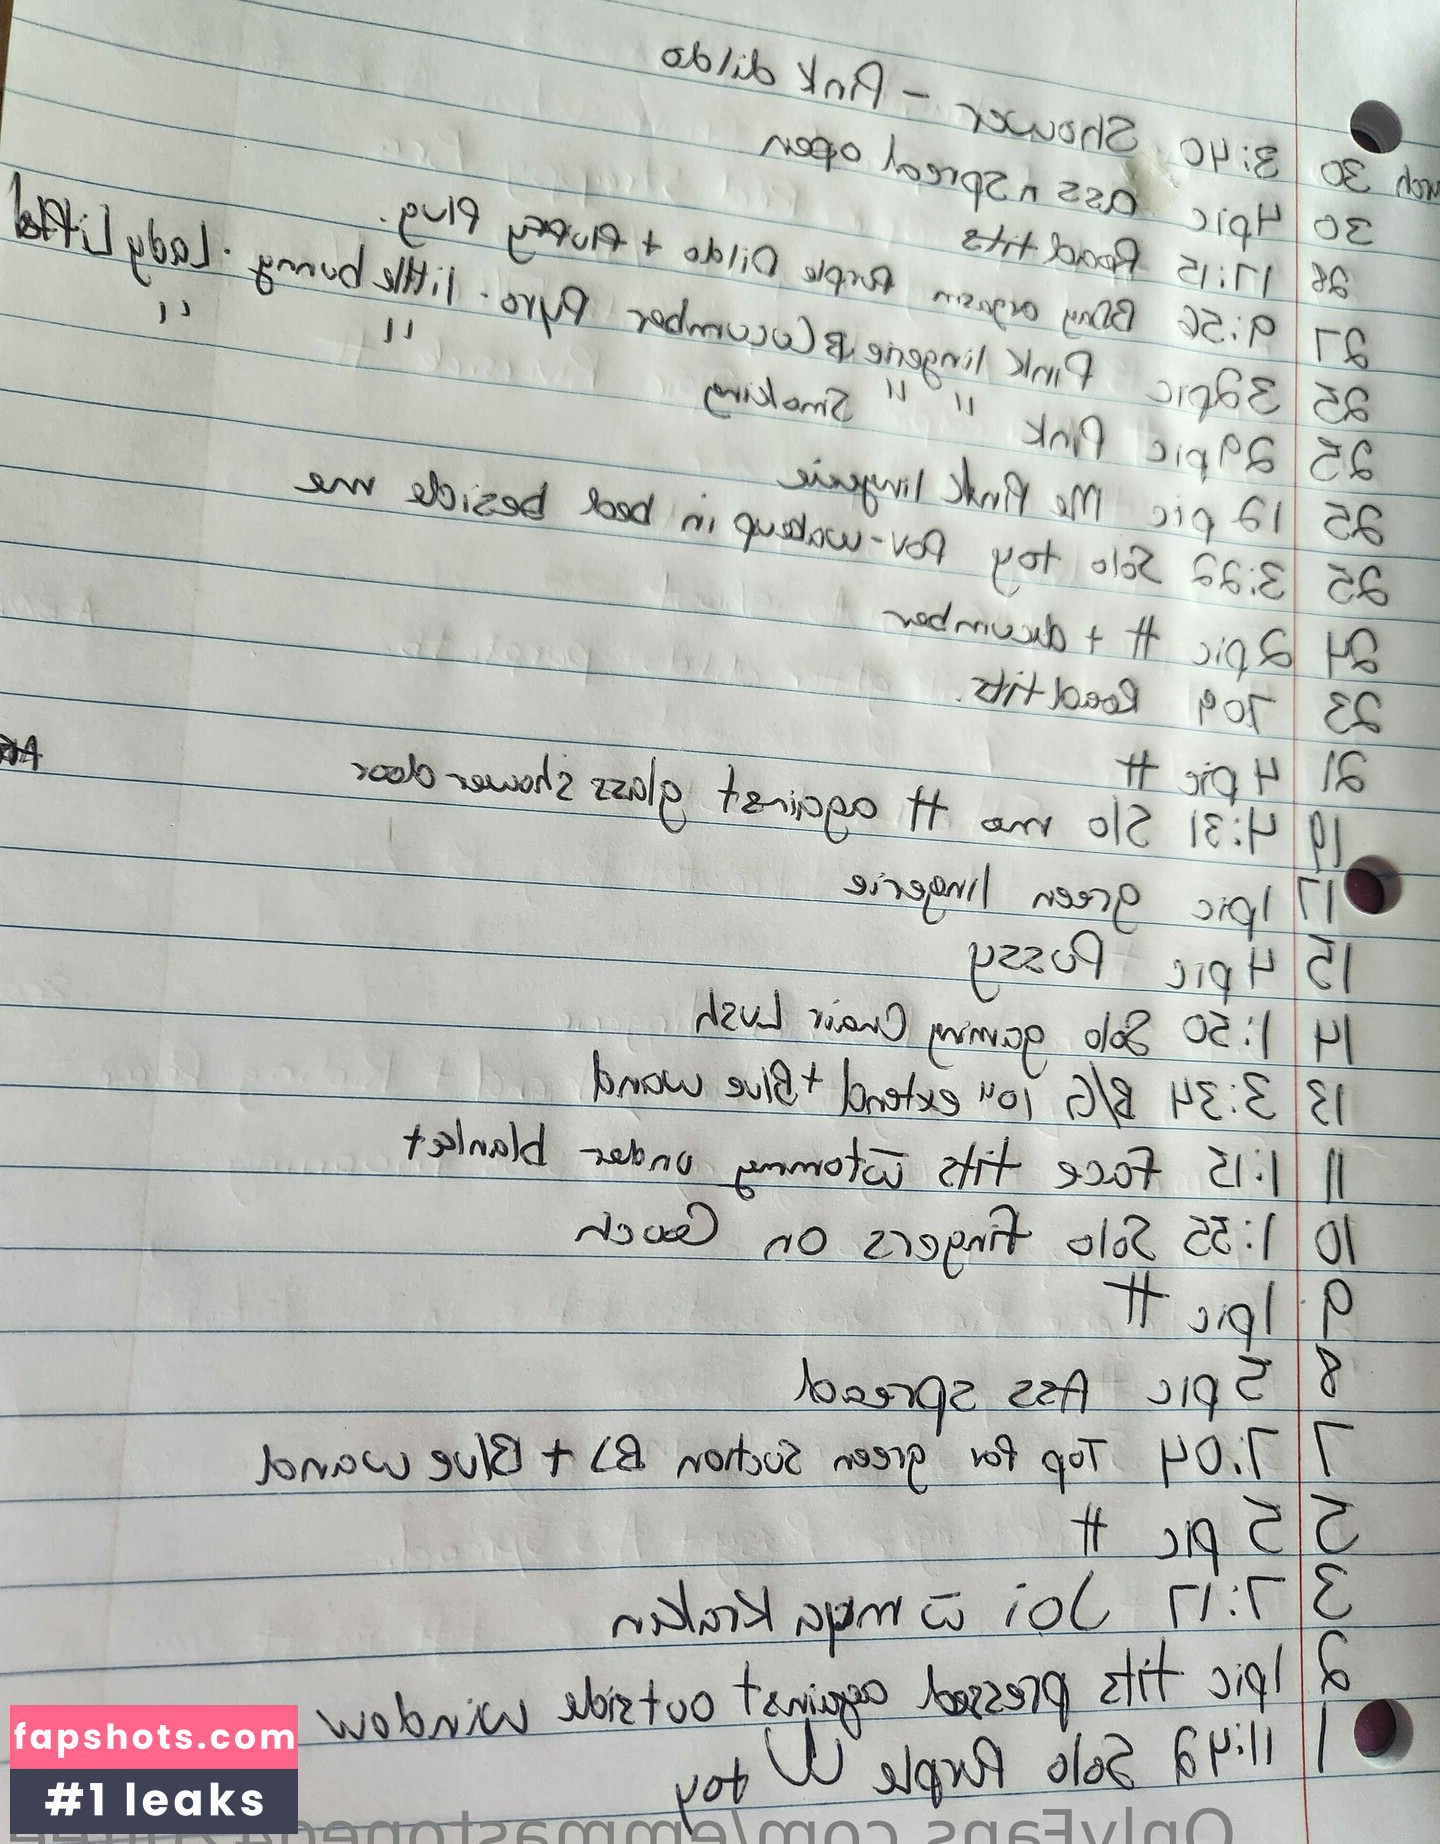 arch 30 3:40 Shower - Pink dildo
30 4pic ass n Spread open
28 17:15 Road tits
27 9:56 orgasm Purple Dildo + Plug.
25 32pic Pink lingerie Cucumber Pyro. little bunny. Lady
25 29pic Pink " " Smoking " "
25 12 pic Me Pink lingerie
25 3:22 Solo toy Pov-wakeup in bed beside me
24 2pic # +
23 709 Road tits.
21 4 pic #
19 4:31 S/o me # against glass shower door
17 1pic green lingerie
15 4 pic Pussy
14 1:50 Solo gaming Chair Lush
13 3:34 B/G 10" extend + Blue wand
11 1:15 face tits w tommy under blanket
10 1:55 Solo fingers on Couch
9 1pic #
8 5 pic Ass spread
7 7:04 Top Pov green suction BJ + Blue wand
5 5 pic #
3 7:17 Joi w mega Kraken
2 1pic tits pressed against outside window
1 11:42 Solo Purple U toy
fapshots.com
#1 leaks